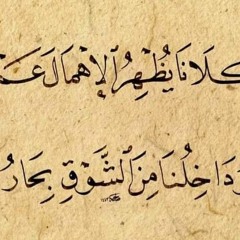 كِلَانَا يُظْهِرُ ٱلْإِهْمَالَ
وَدَاخِلُنَا مِنَ ٱلشَّوْقِ بِحَارُ